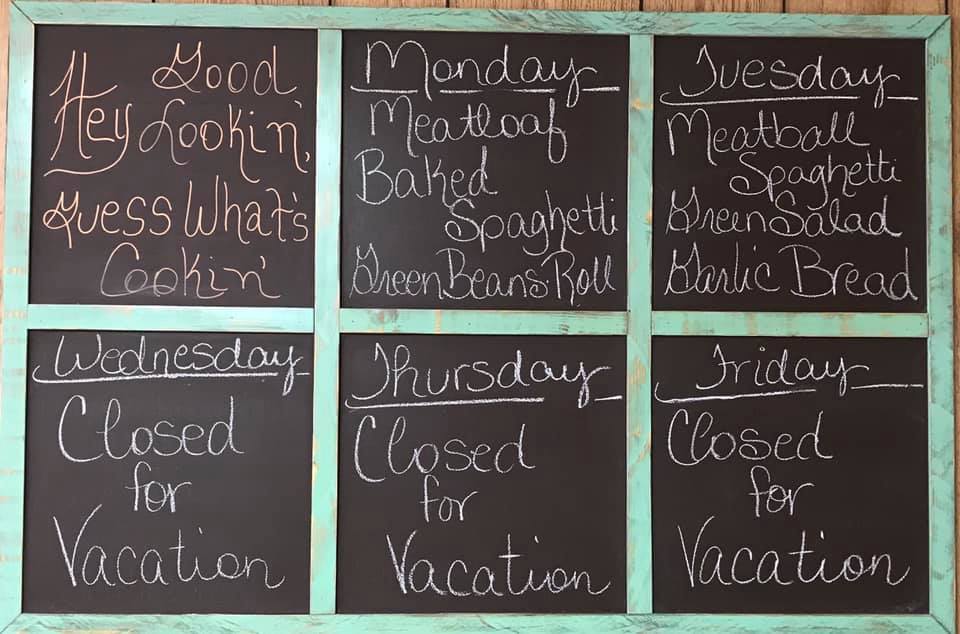 Good
Hey Lookin',
Guess What's
Cookin'
Monday
Meatloaf
Baked
Spaghetti
Green Beans Roll
Tuesday
Meatball
Spaghetti
Green Salad
Garlic Bread
Wednesday
Closed
for
Vacation
Thursday
Closed
for
Vacation
Friday
Closed
for
Vacation